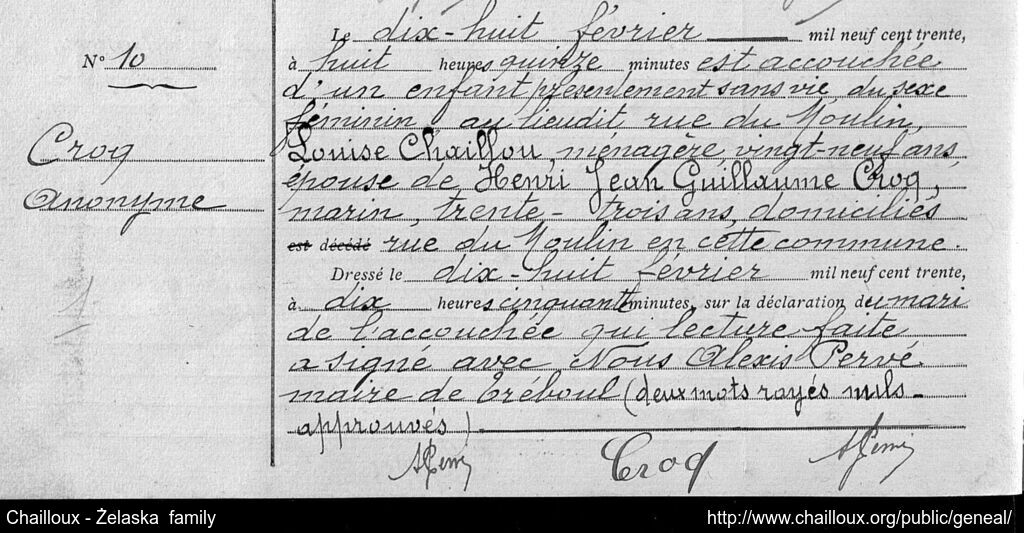 N° 10
Croq
Anonyme
Le dix-huit février mil neuf cent trente,
à huit heures quinze minutes est accouchée
d'un enfant présentement sans vie, du sexe
féminin, au lieudit, rue du Moulin,
Louise Chaillou, ménagère, vingt-neuf ans,
épouse de Henri Jean Guillaume Croq,
marin, trente-trois ans, domiciliés
est décédé rue du Moulin en cette commune.
Dressé le dix-huit février mil neuf cent trente,
à dix heures cinquante minutes, sur la déclaration du mari
de l'accouchée qui lecture faite
a signé avec Nous Alexis Pervé
maire de Tréboul (deux mots rayés nuls
approuvés)
Croq
Chailloux - Żelaska family
http://www.chailloux.org/public/geneal/